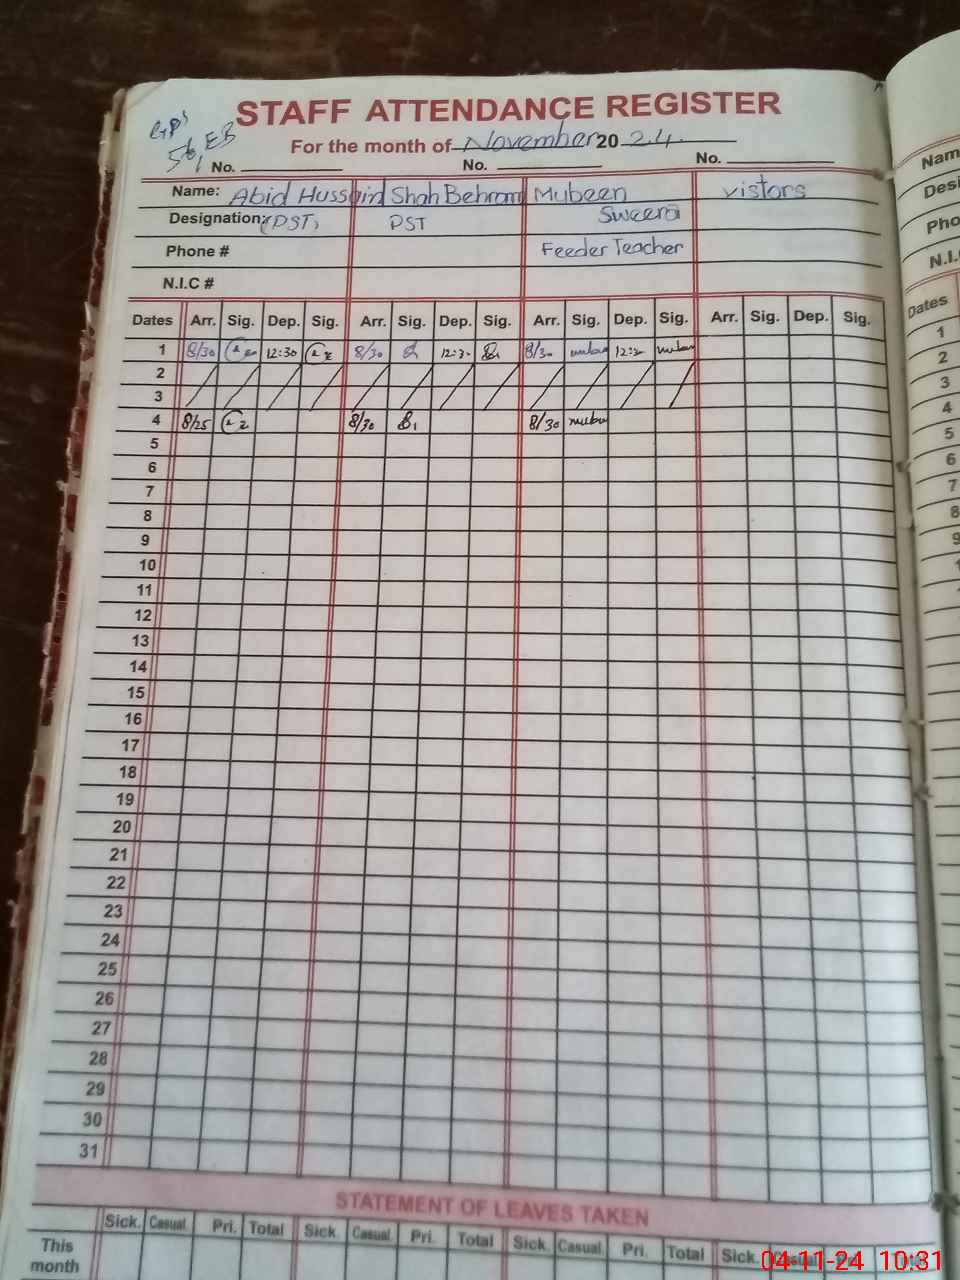 STAFF ATTENDANCE REGISTER
For the month of November 2024
No. No. No.
Name: Abid Hussain Shah Behram Mubeen Sweera vistors
Designation: (PST) PST
Feeder Teacher
Phone #
N.I.C #
Dates Arr. Sig. Dep. Sig. Arr. Sig. Dep. Sig. Arr. Sig. Dep. Sig. Arr. Sig. Dep. Sig.
1 8/30 12:30 8/30 12:30 8/30 12:30
2
3
4 8/25 8/30 8/30
5
6
7
8
9
10
11
12
13
14
15
16
17
18
19
20
21
22
23
24
25
26
27
28
29
30
31
STATEMENT OF LEAVES TAKEN
Sick. Casual. Pri. Total Sick. Casual. Pri. Total Sick. Casual. Pri. Total Sick. Casual Pri. Total
This month
04-11-24 10:31
Name
Desi
Pho
N.I.
Dates
1
2
3
4
5
6
7
8
9